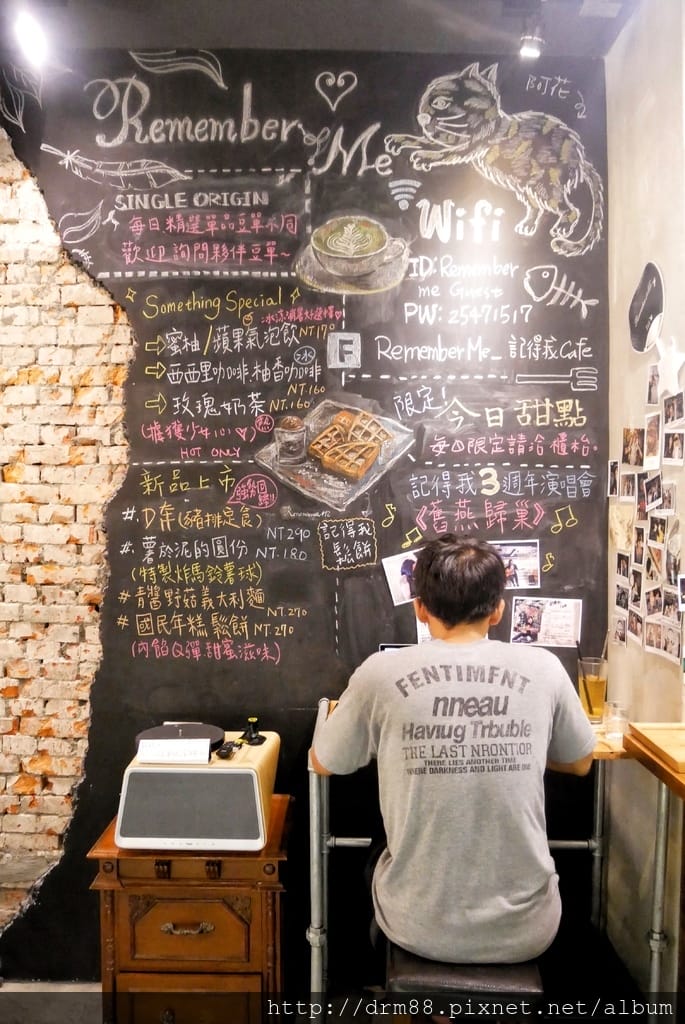 Remember Me
阿花
SINGLE ORIGIN
每日精選單品豆單不同
歡迎詢問夥伴豆單~
Wifi
ID: Remember
me Guest
PW: 25471517
F RememberMe_記得我Cafe
Something Special
蜜柚/蘋果氣泡飲 NT170
西西里咖啡.柚香咖啡 冰
NT.160
玫瑰奶茶 NT.160
HOT ONLY
限定! 今日甜點
每日限定請洽櫃檯.
新品上市
#.D奔(豬排定食)
NT 290
#.薯於泥的圓份 NT.180
(特製炸馬鈴薯球)
#青醬野菇義大利麵
NT 270
#國民年糕鬆餅 NT 270
(內餡Q彈甜蜜滋味)
記得我
鬆餅
記得我3週年演唱會
《舊燕歸巢》
FENTIMFNT
nneau
Haviug Trbuble
THE LAST NRONTIOR
THERE LIES ANOTHER TIME
WHERE DARKNESS AND LIGHT ARE ONE
http://drm88.pixnet.net/album